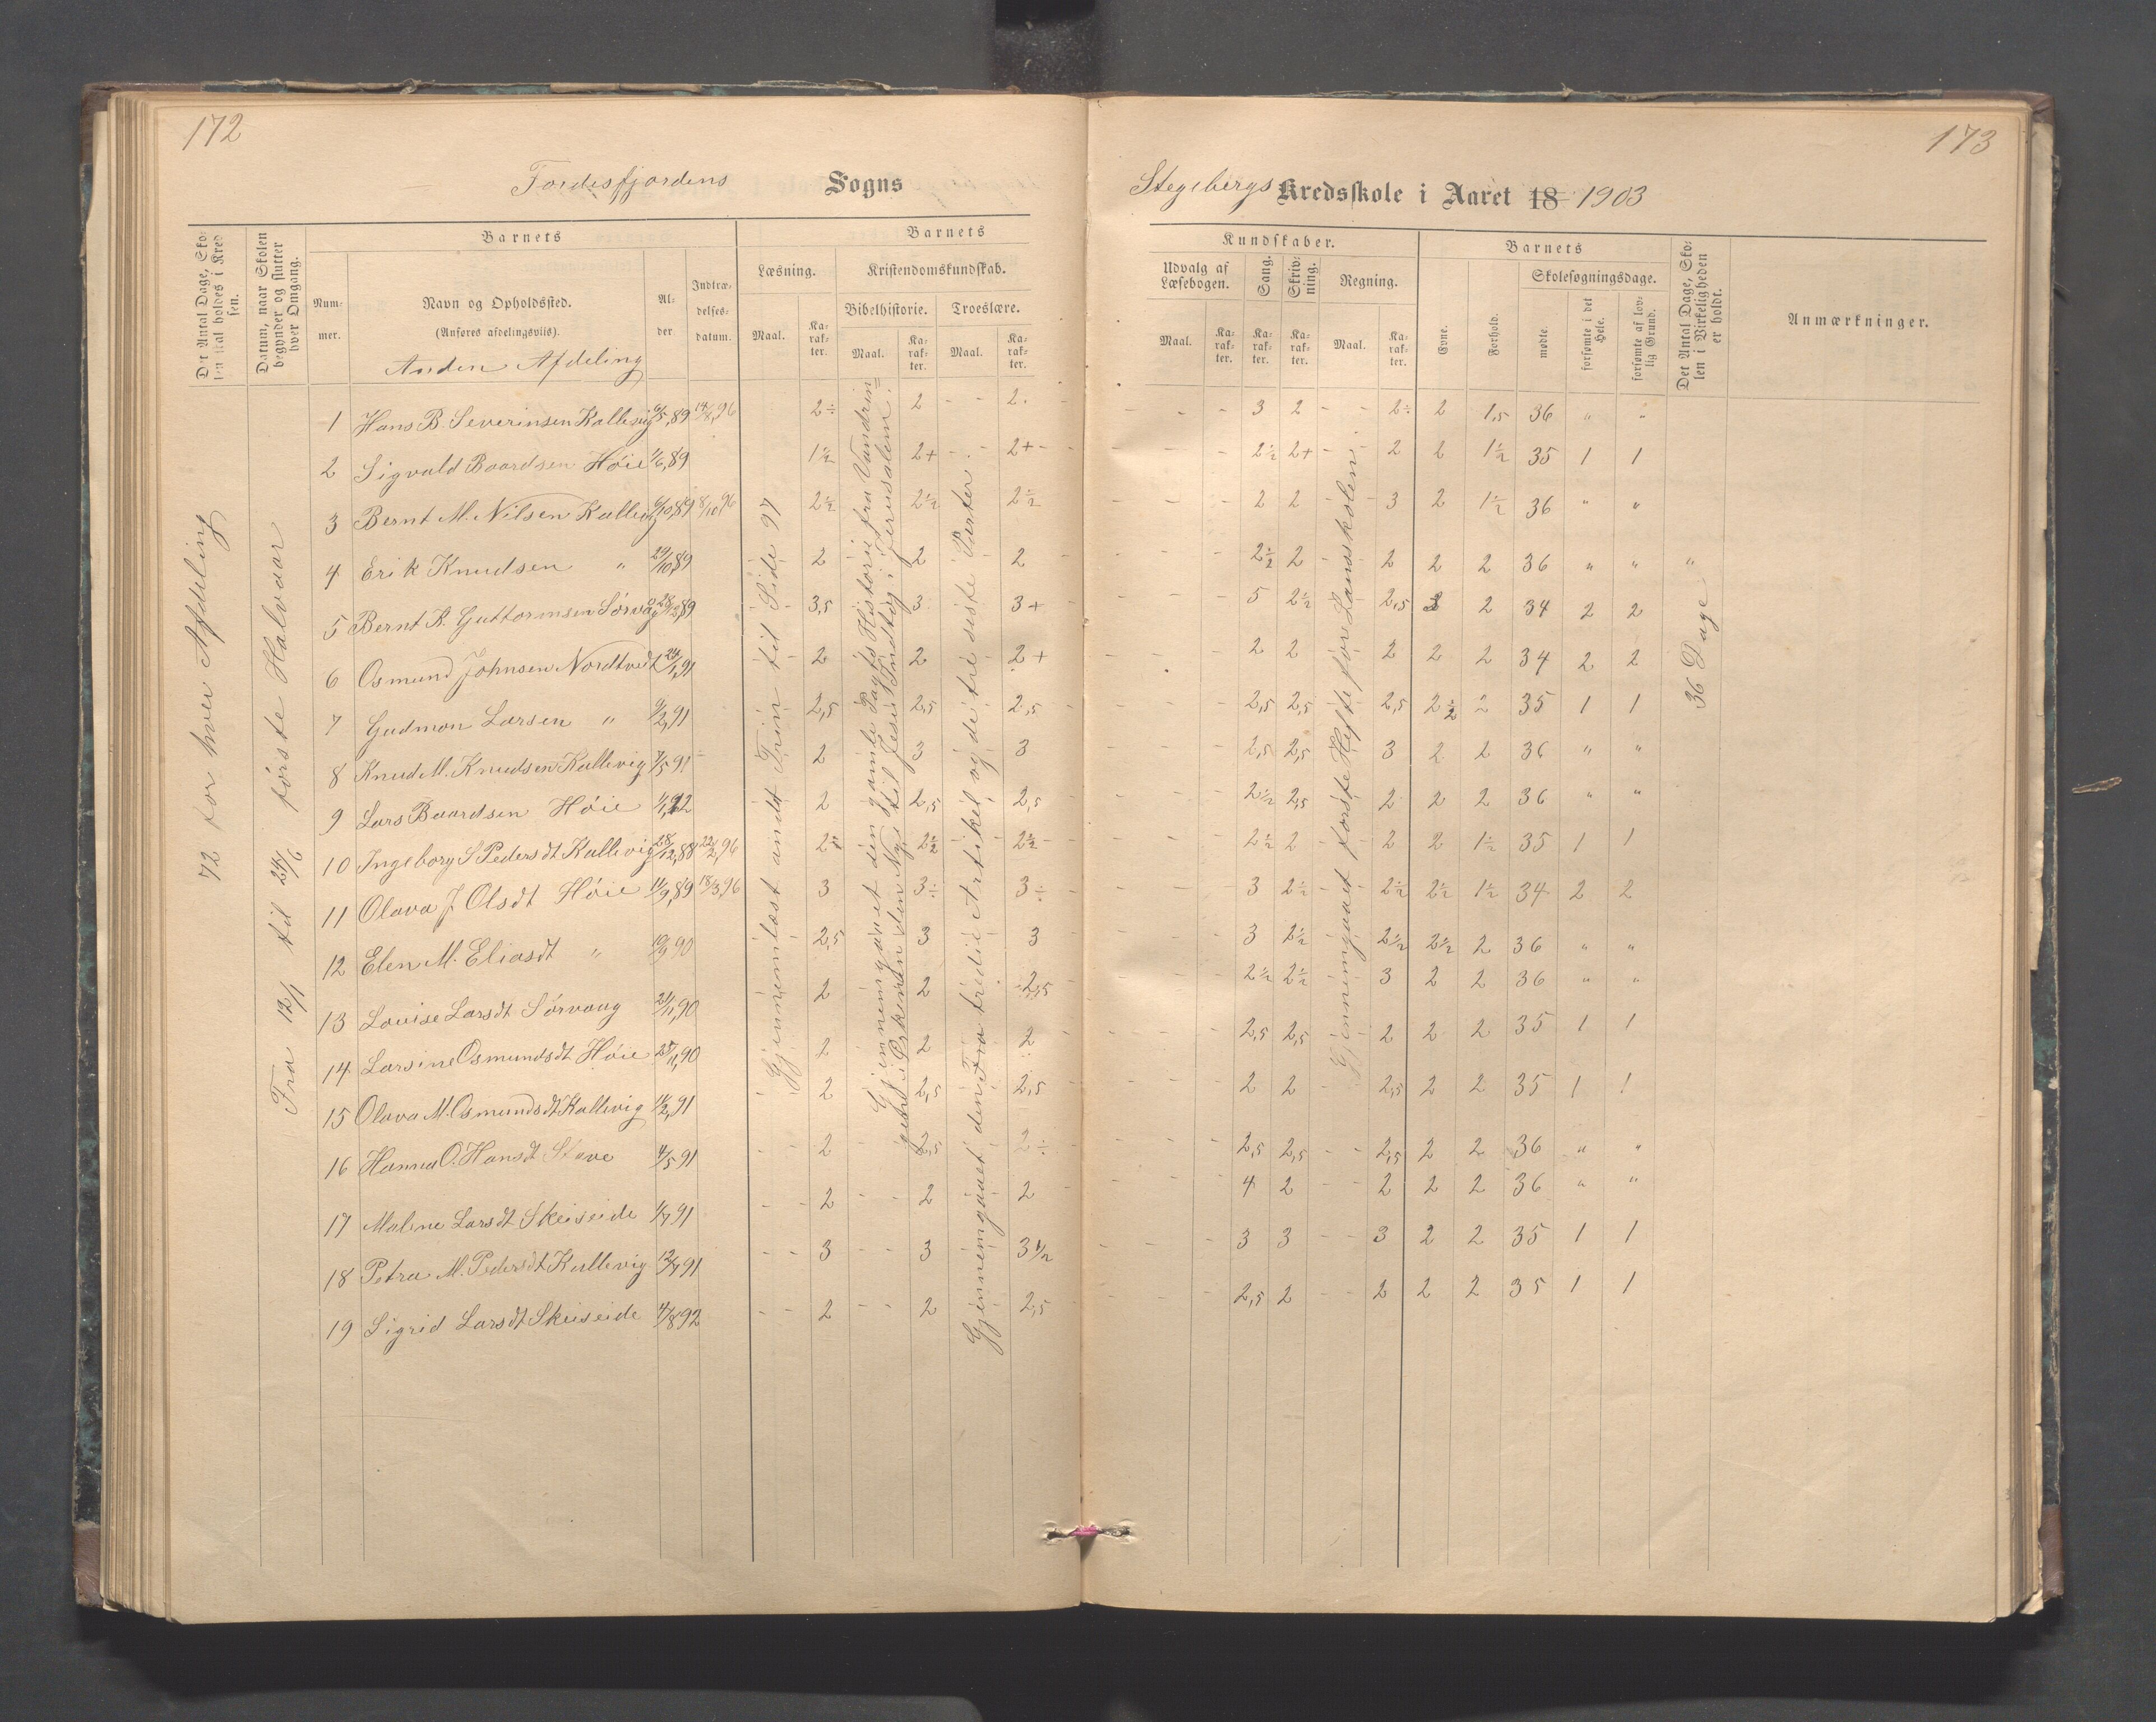 172
Fordesfjordens Sogns
Det Antal Dage, Skolen skal holdes i Kredsen.
Datum, naar Skolen begynder og slutter hver Omgang.
Barnets
Nummer.
Navn og Opholdssted.
(Anføres afdelingsviis).
Anden Afdeling
Alder
Indtrædelsesdatum.
Barnets
Læsning.
Kristendomskundskab.
Bibelhistorie.
Troeslære.
Maal.
Karakter.
Maal.
Karakter.
Maal.
Karakter.
72 for hver Afdeling
Fra 12/1 til 24/6 første Halvaar
Gjennemlæst andet Trin til Side 97
Gjennemgaaet den gamle Pagts Historie fra Vandrin=
gen i Ørkenen den Nye til Jesu Indtog i Jerusalem.
Gjennemgaaet den Fra tredie Artikel og de tre siste Parter
1 Hans B. Severinsen Kallevig 6/5,89 14/8,96 2÷ 2 - - 2.
2 Sigvald Baardsen Høie 1/6,89 1½ 2+ - 2+ -
3 Bernt M. Nilsen Kallevig 6/10,89 8/10,96 2½ 2½ 2½
4 Erik Knudsen " 29/10,89 2 2 2
5 Bernt K. Guttormsen Sørvaag 28/12,89 3,5 3 3+
6 Osmund Johnsen Nordtvedt 24/1,91 2 2 2+
7 Gudmon Larsen " 9/2,91 2,5 2,5 2,5
8 Knud M. Knudsen Kallevig 7/5 91 2 3 3
9 Lars Baardsen Høie 1/1,92 2 2,5 2,5
10 Ingeborg S Pedersdt Kallevig 28/12,88 22/2,96 2÷ 2½ 2½
11 Olava J Olsdt Høie 11/9,89 18/3,96 3 3÷ 3÷
12 Elen M. Eliasdt " 19/9 90 2,5 3 3
13 Louise Larsdt Sørvaag 21/11,90 2 2 2,5
14 Larsine Osmundsdt Høie 25/11,90 2 2 2
15 Olava M. Osmundsdt Kallevig 11/2,91 2 2,5 2,5
16 Hanna O. Hansdt Stave 4/5 91 2 2,5 2÷
17 Malene Larsdt Skeiseide 1/7 91 2 2 2
18 Petra M. Pedersdt Kallevig 12/7 91 3 3 3½
19 Sigrid Larsdt Skeiseide 4/8 92 2 2 2,5
173
Stegebergs Kredsskole i Aaret 18 1903
Kundskaber.
Udvalg af Læsebogen.
Sang.
Skrivning.
Regning.
Maal.
Karakter.
Karakter.
Karakter.
Maal.
Karakter.
Barnets
Evne.
Forhold.
Skolesøgningsdage.
mødte.
forsømte i det Hele.
forsømte af lovlig Grund.
Det Antal Dage, Skolen i Virkeligheden er holdt.
Anmærkninger.
Gjennemgaaet første Hefte for Landsskolen
36 Dage
- - - 3 2 - - 2÷ 2 1,5 36 " "
- - - 2½ 2+ - 2 2 1½ 35 1 1
- - - 2 2 - 3 2 1½ 36 " "
- - - 2½ 2 - 2 2 2 36 " " "
- - - 5 2½ - 2,5 2 2 34 2 2
- - - 2 2 2 2 2 34 2 2
- - - 2,5 2,5 2,5 2½ 2 35 1 1
- - - 2,5 2,5 3 2 2 36 " "
- - - 2½ 2,5 2 2 2 36 " "
- - - 2½ 2 - 2 2 1½ 35 1 1
- - - 3 2½ - 2½ 2½ 1½ 34 2 2
- - - 3 2½ 2½ 2½ 2 36 " "
- - - 2½ 2½ - 3 2 2 36 " "
- - - 2,5 2,5 - 2 2 2 35 1 1
- - - 2 2 - 2,5 2 2 35 1 1
- - - 2,5 2,5 - - 2,5 2 2 36 " "
- - - 4 2 - - 2 2 2 36 " "
- - - 3 3 - - 3 2 2 35 1 1
- - - 2,5 2 - - 2 2 2 35 1 1